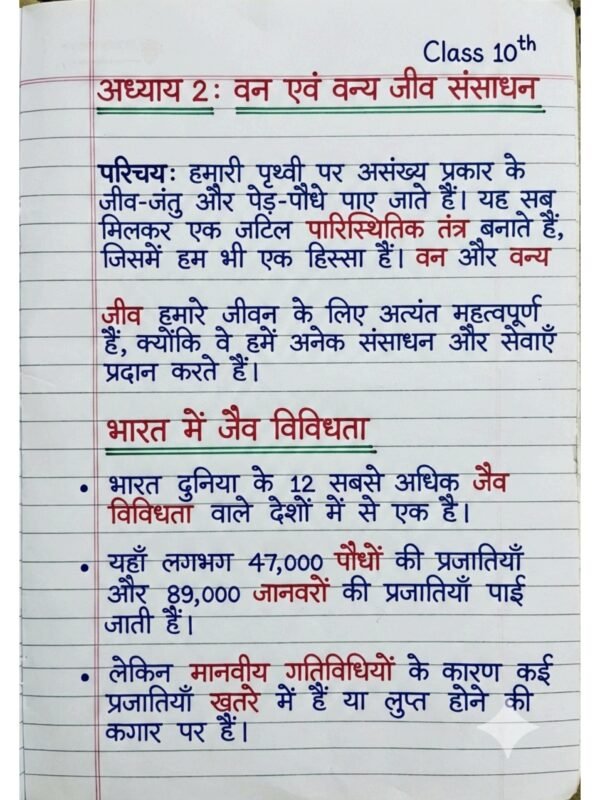 Class 10th
अध्याय 2: वन एवं वन्य जीव संसाधन
परिचय: हमारी पृथ्वी पर असंख्य प्रकार के
जीव-जंतु और पेड़-पौधे पाए जाते हैं। यह सब
मिलकर एक जटिल पारिस्थितिक तंत्र बनाते हैं,
जिसमें हम भी एक हिस्सा हैं। वन और वन्य
जीव हमारे जीवन के लिए अत्यंत महत्वपूर्ण
हैं, क्योंकि वे हमें अनेक संसाधन और सेवाएँ
प्रदान करते हैं।
भारत में जैव विविधता
• भारत दुनिया के 12 सबसे अधिक जैव
विविधता वाले देशों में से एक है।
• यहाँ लगभग 47,000 पौधों की प्रजातियाँ
और 89,000 जानवरों की प्रजातियाँ पाई
जाती हैं।
• लेकिन मानवीय गतिविधियों के कारण कई
प्रजातियाँ खतरे में हैं या लुप्त होने की
कगार पर हैं।